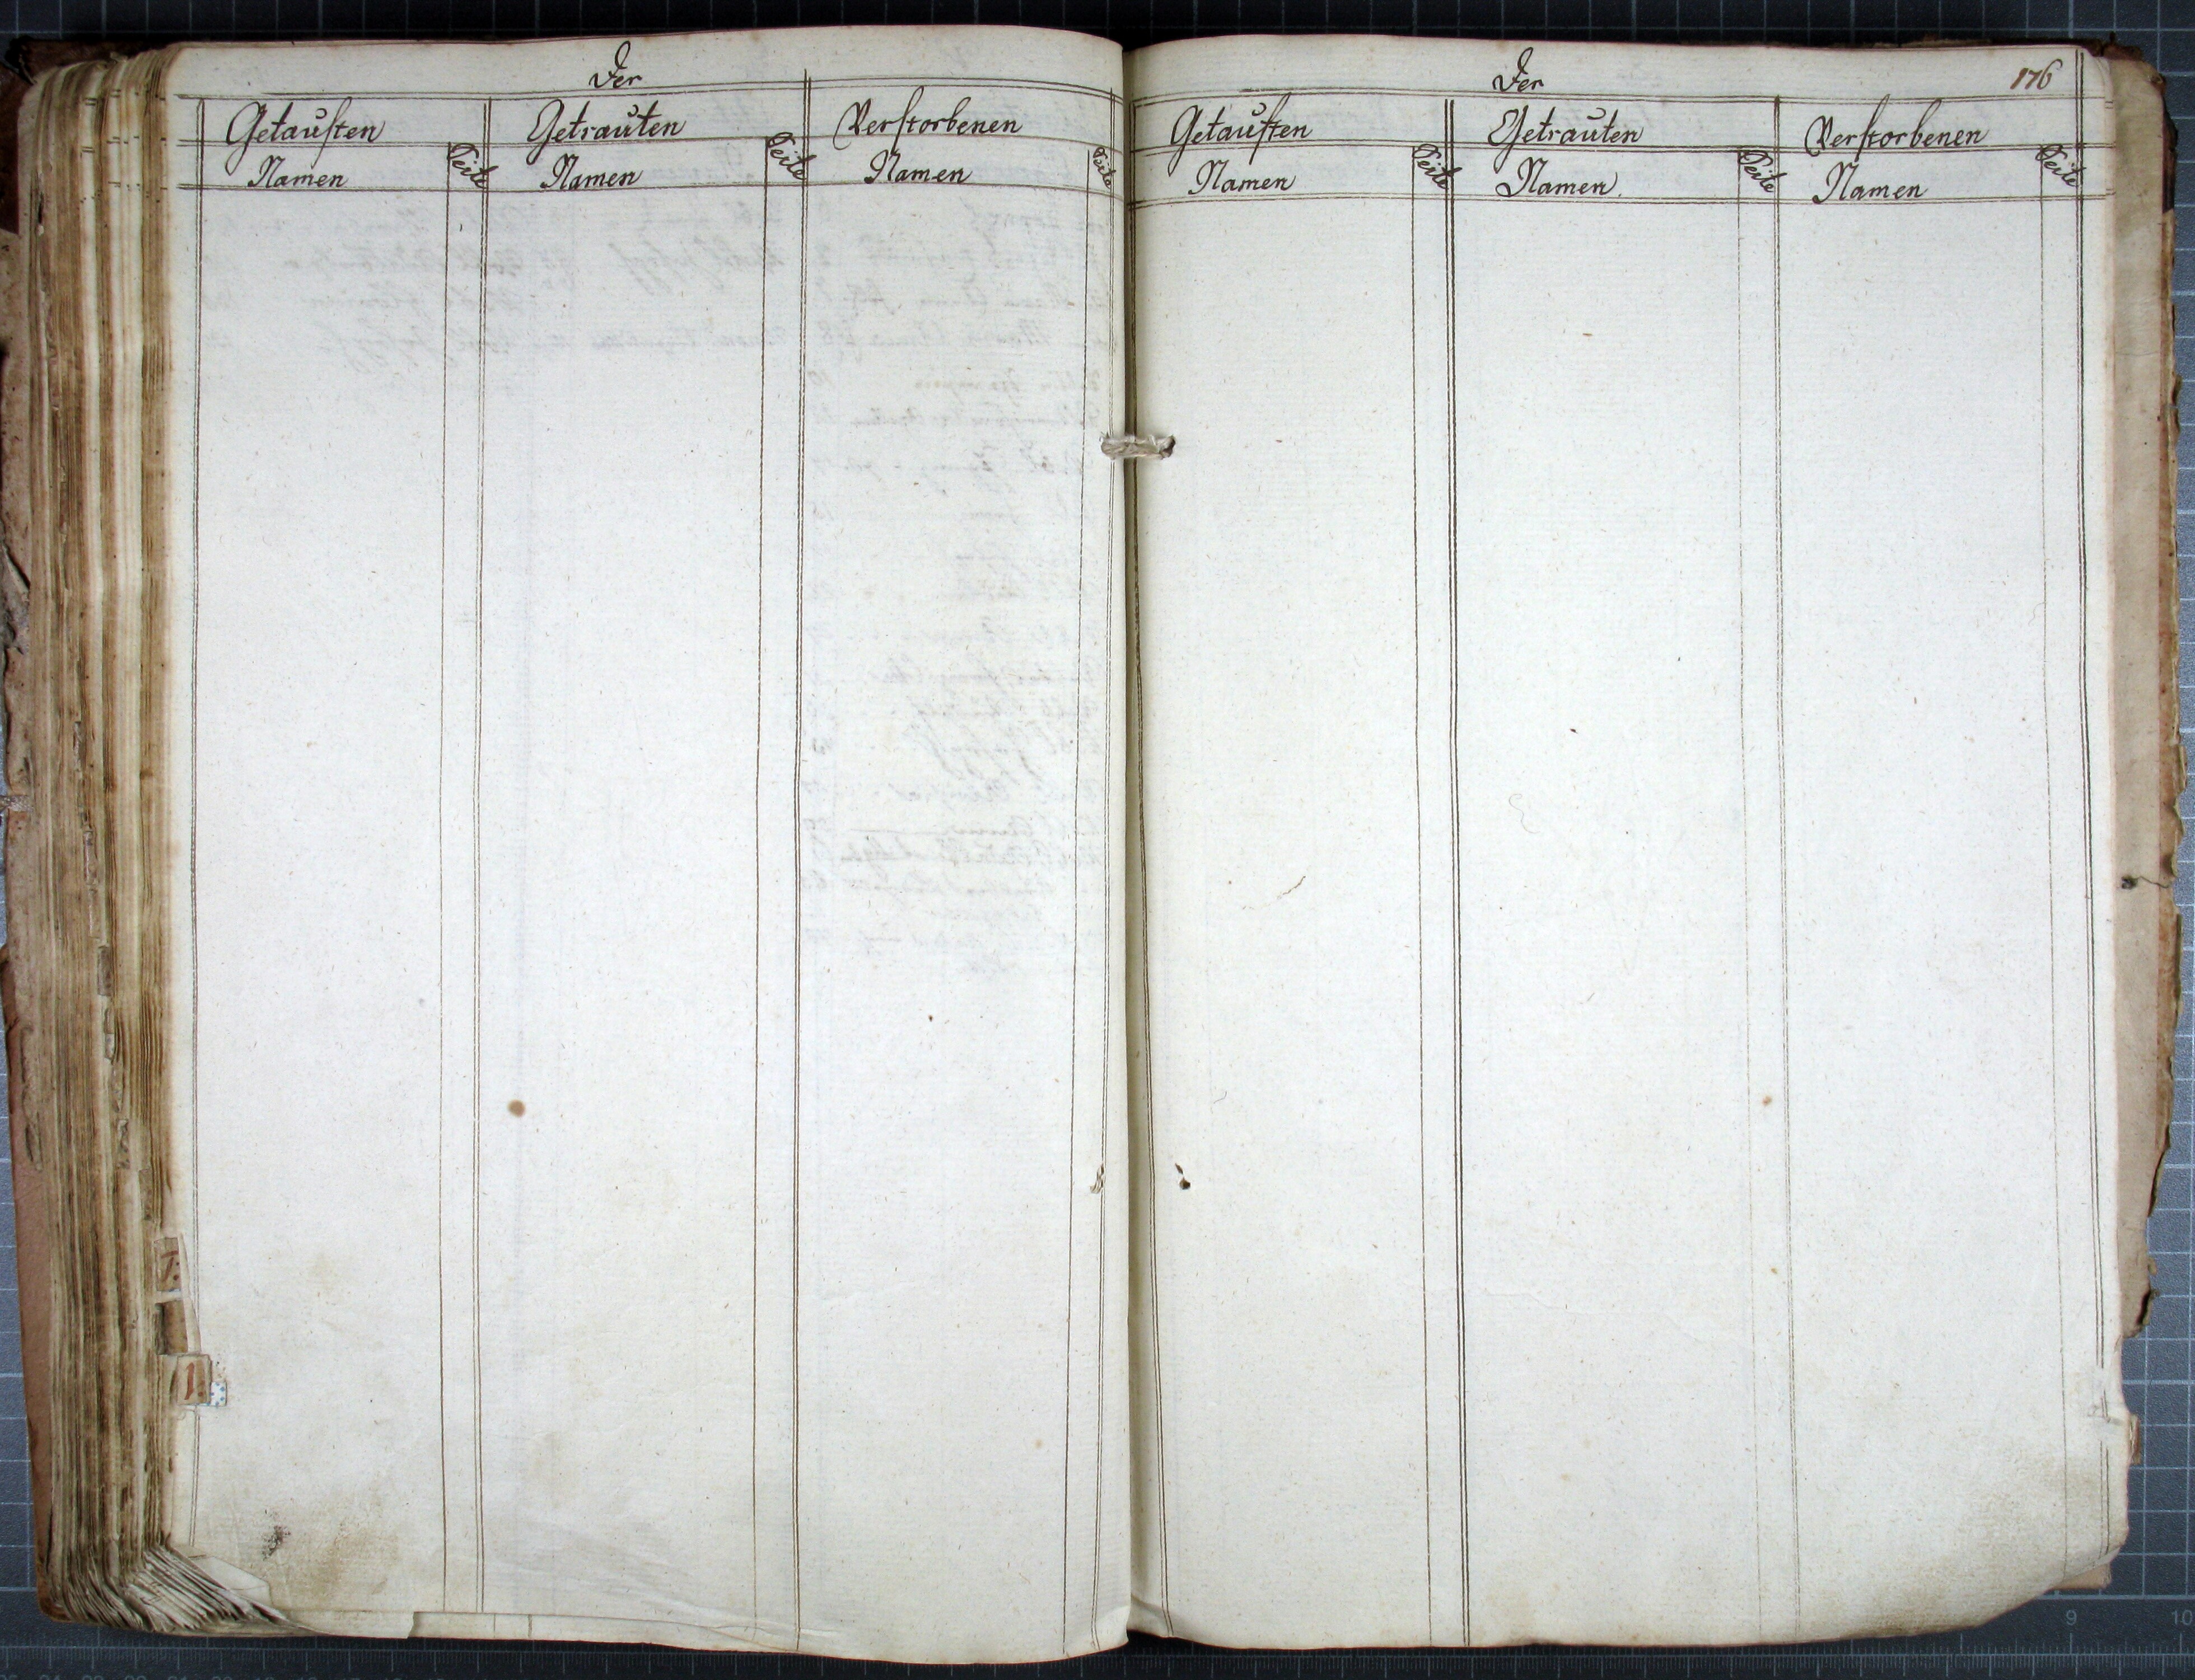 Der
Getauften Getrauten Verstorbenen
Namen Seite Namen Seite Namen Seite
Der 176
Getauften Getrauten Verstorbenen
Namen Seite Namen Seite Namen Seite
1.
9 10